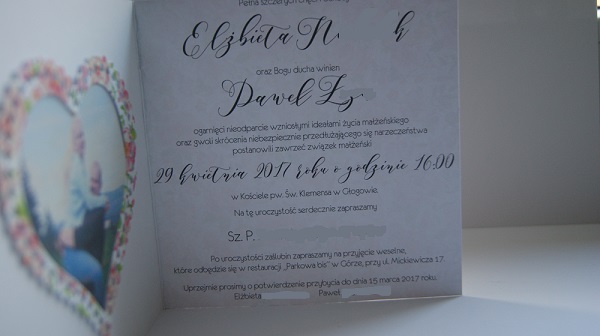 Pełna szczerych chęci
Elżbieta N. h
oraz Bogu ducha winien
Paweł Z
ogarnięci nieodparcie wzniosłymi ideałami życia małżeńskiego
oraz gwoli skrócenia niebezpiecznie przedłużającego się narzeczeństwa
postanowili zawrzeć związek małżeński
29 kwietnia 2017 roku o godzinie 16:00
w Kościele pw. Św. Klemensa w Głogowie.
Na tę uroczystość serdecznie zapraszamy
Sz. P.
Po uroczystości zaślubin zapraszamy na przyjęcie weselne,
które odbędzie się w restauracji „Parkowa bis" w Górze, przy ul. Mickiewicza 17.
Uprzejmie prosimy o potwierdzenie przybycia do dnia 15 marca 2017 roku.
Elżbieta Paweł